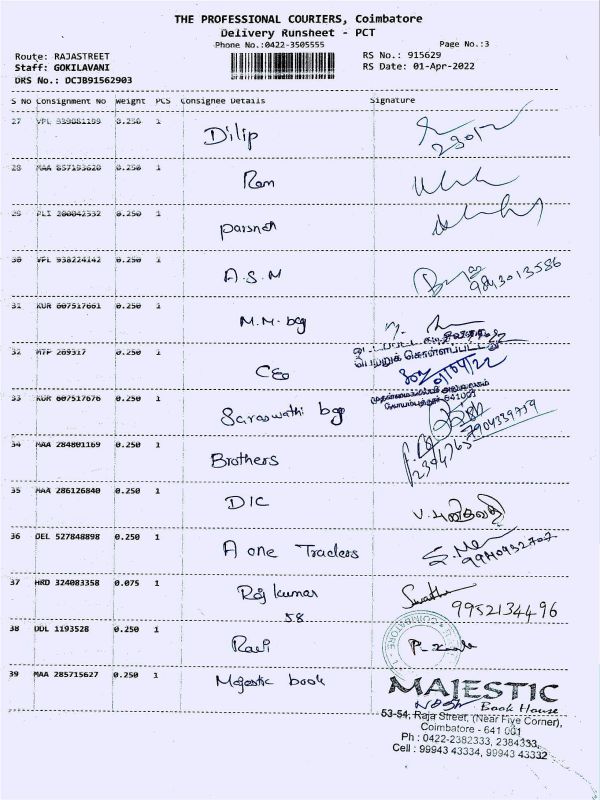 THE PROFESSIONAL COURIERS, Coimbatore
Delivery Runsheet - PCT
Phone No.:0422-3505555
Page No.:3
Route: RAJASTREET
RS No.: 915629
Staff: GOKILAVANI
RS Date: 01-Apr-2022
DRS No.: DCJB91562903
S No Consignment No Weight PCS Consignee Details Signature
27 VPL 0.250 1 Dilip
28 MAA 857193620 0.250 1 Ram
29 PLI 200042332 0.250 1
30 VPL 938224142 0.250 1 A.S.M 9843013586
31 KUR 607517661 0.250 1 M.M. bcg
பெற்றுக் கொள்ளப்பட்டது
32 MTP 269317 0.250 1 CEO
முதன்மைக்கல்வி அலுவலகம்
கோயம்புத்தூர் 641001
33 KUR 607517676 0.250 1 Saraswathi bcg
7904339759
34 MAA 284801169 0.250 1 Brothers
2394765
35 MAA 286126840 0.250 1 DIC
36 DEL 527848898 0.250 1 A one Traders
9940932707
37 HRD 324083358 0.075 1 Raj kumar
58 9952134496
38 DDL 1193528 0.250 1 Ravi
39 MAA 285715627 0.250 1 Majestic book
MAJESTIC
Book House
53-54, Raja Street, (Near Five Corner),
Coimbatore - 641 001
Ph : 0422-2382333, 2384333,
Cell : 99943 43334, 99943 43332